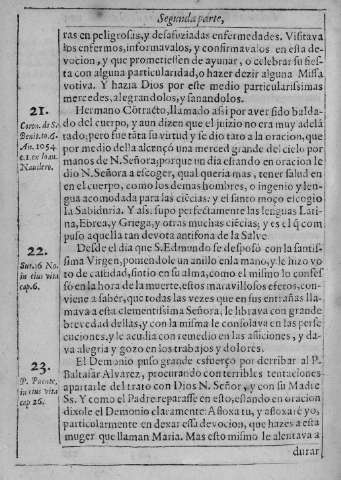 Segunda parte,
ras en peligrosas, y desafuziadas enfermedades. Visitava
los enfermos, informavalos, y confirmavalos en esta de-
vocion, y que prometiessen de ayunar, o celebrar su fies-
ta con alguna particularidad, o hazer dezir alguna Missa
votiva. Y hazia Dios por este medio particularissimas
mercedes, alegrandolos, y sanandolos.
21.
Coron. de S.
Benit. to. 6.
An. 1054
c. 1. ex Ioan.
Nauclero.
Hermano Cõtracto, llamado assi por aver sido balda-
do del cuerpo, y aun dizen que el juizio no era muy adelã
tado; pero fue tãta su virtud y se dio tato a la oracion, que
por medio della alcençò una merced grande del cielo por
manos de N. Señora; porque un dia estando en oracion le
dio N. Señora a escoger, qual queria mas, tener salud en
en el cuerpo, como los demas hombres, o ingenio y len-
gua acomodada para las ciẽcias: y el santo moço escogio
la Sabiduria. Y assi supo perfectamente las lenguas Lati-
na, Ebrea, y Griega, y otras muchas ciẽcias; y es el q̃ com
puso aquella tan devota antifona de la Salve.
22.
Sur. 16 No.
in eius vita
cap. 6.
Desde el dia que S. Edmundo se desposò con la santis-
sima Virgen, poniendole un anillo en la mano, y le hizo vo
to de castidad, sintio en su alma, como el mismo lo confes
sò en la hora de la muerte, estos maravillosos efetos, con-
viene a saber, que todas las vezes que en sus entrañas lla-
mava a esta clementissima Señora, le librava con grande
brevedad dellas, y con la misma le consolava en las perse
cuciones, y le acudia con remedio en las aficiones, y da-
va alegria y gozo en los trabajos y dolores.
23.
P. Puente,
in eius vita
cap 26.
El Demonio puso grande esfuerço por derribar al P.
Baltasar Alvarez, procurando con terribles tentaciones
apartarle del trato con Dios N. Señor, y con su Madre
SS. Y como el Padre reparasse en esto, estando en oracion
dixole el Demonio claramente: Afloxa tu, y afloxarè yo,
particularmente en dexar essa devocion, que hazes a essa
muger que llaman Maria. Mas esto mismo le alentava a
durar